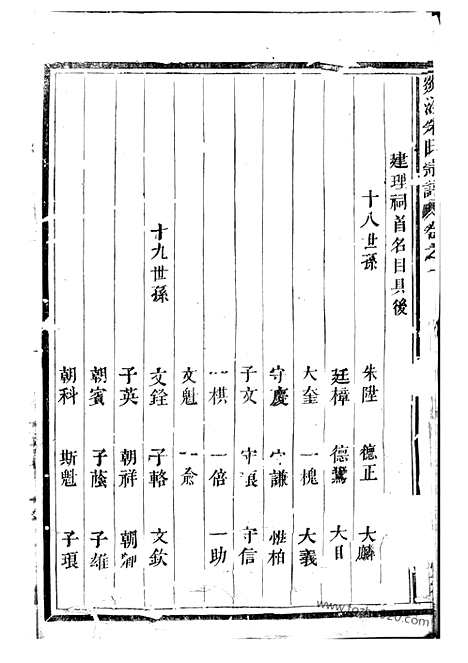 朱氏宗譜卷之一
建理祠首名目具後
十八世孫
朱陞 德正 大麟
廷樟 德鸞 大目
大奎 一槐 大義
守慶 守謙 惟柏
子文 守信
一棋 一倍 一助
文魁
十九世孫
文銓 子輅 文欽
子英 朝祥
朝賓 子蔭 子雄
朝科 斯魁 子琅